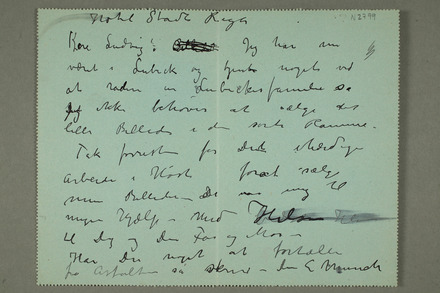 Hotel Stadt Riga
N2799
Kere Ludvig! Jeg har nu
været i Lubeck og tjent noget ved
at radere en Lubeckerfamilie så
jeg ikke behøver at sælge det
lille Billede i den sorte Ramme.
Tak forresten for Dit ihærdige
Arbeide i Høst for at sælge
mine Billeder – Det var mig til
megen Hjælp – Med Hilsen
til Dig og din Far og Mor –
Har Du noget at fortælle
fra Asfalten så skriv – Din E Munch